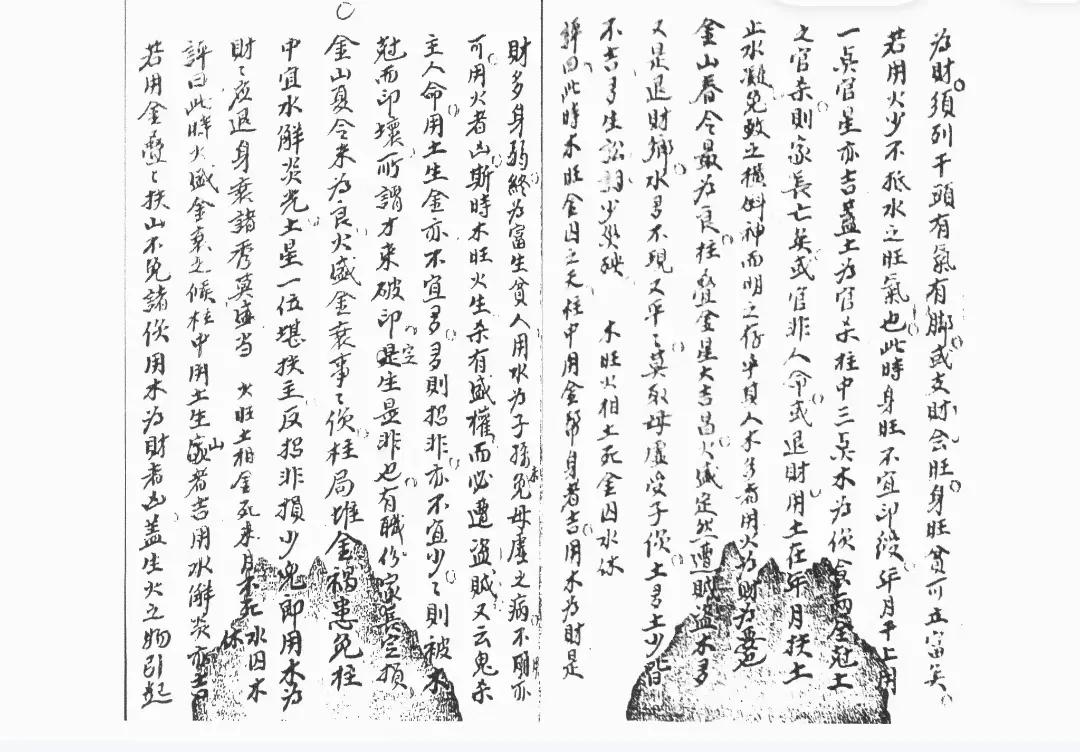 為財須列干頭有氣有脚或支財會旺身旺貧可立富矣
若用火少不抵水之旺氣也此時身旺不宜印綬年月干上用
一点官星亦吉蓋土為官杀柱中三点木為傷食而全冠土
之官杀則家長亡矣或官非人命或退財用土在年月扶土
止水難免致之橫斜神而明之存乎其人木多者用火為財為
金山春令最為良柱叠金星大吉昌火盛定然遭賊盜木多
又是退財鄉水多不現又平之莫取母虛受子傷土多土少皆
不吉多生訟詞少災殃 木旺火相土死金囚水休
評曰此時木旺金囚之天柱中用金帮身者吉用木為財是
財多身弱終為富生貧人用水為子孫免母虛之病不用亦
可用火者凶斯時木旺火生杀有盛權而必遭盜賊又云鬼杀
主人命用土生金亦不宜多多則招非亦不宜少之則被木
冠而印之壞所謂才來破印定是生是非也有職份家長定損
金山夏令来為良火盛金衰事之傷柱局堆金禍患免柱
中宜水解炎光土星一位堪扶主反招非損少兒即用木為
財之应退身衰諸秀莫盛当 火旺土相金死水囚木休
評曰此時火盛金衰之候柱中用土生山家者吉用水解炎亦吉
若用金疊之扶山不免諸傷用木為財者凶蓋生火之物引起